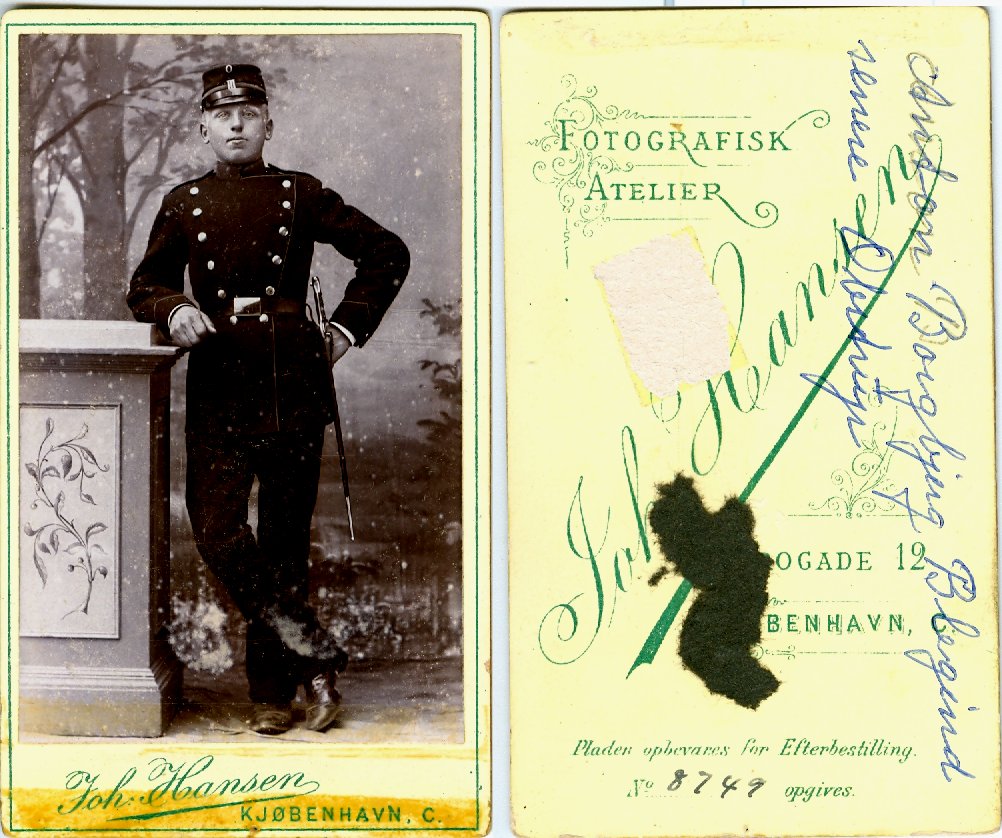 Joh. Hansen
KJØBENHAVN, C.
FOTOGRAFISK
ATELIER
Joh. Hansen
OGADE 12
BENHAVN,
Pladen opbevares for Efterbestilling.
No 8749 opgives.
Bougbjerg Blegind
senere